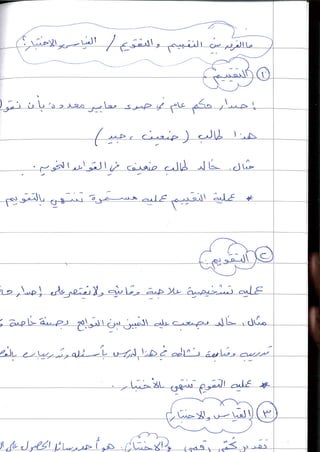 ما الفرق بين التقييم والتقويم / القياس والاختبار؟
① التقييم
إصدار حكم عام في ضوء معايير محددة، بأن نقول
هذا طالب (ضعيف، جيد)
مثال: خالد طالب ضعيف في القواعد النحوية.
* عملية التقييم عملية مستمرة تنتهي بالتقويم
② التقويم:
عملية تشخيصية علاجية وقائية ولا تقتصر على إصدار
مثال: خالد يصعب عليه التمييز بين التوابع وبصفة خاصة
تدريبه ومتابعة نشاطه في هذا الدرس بأسئلة وتدريبات
* عملية التقويم تنتهي بالاختبار.
③ القياس والاختبار
تقدير كمي رقمي والاختبار: هو أحد وسائل الحصول على